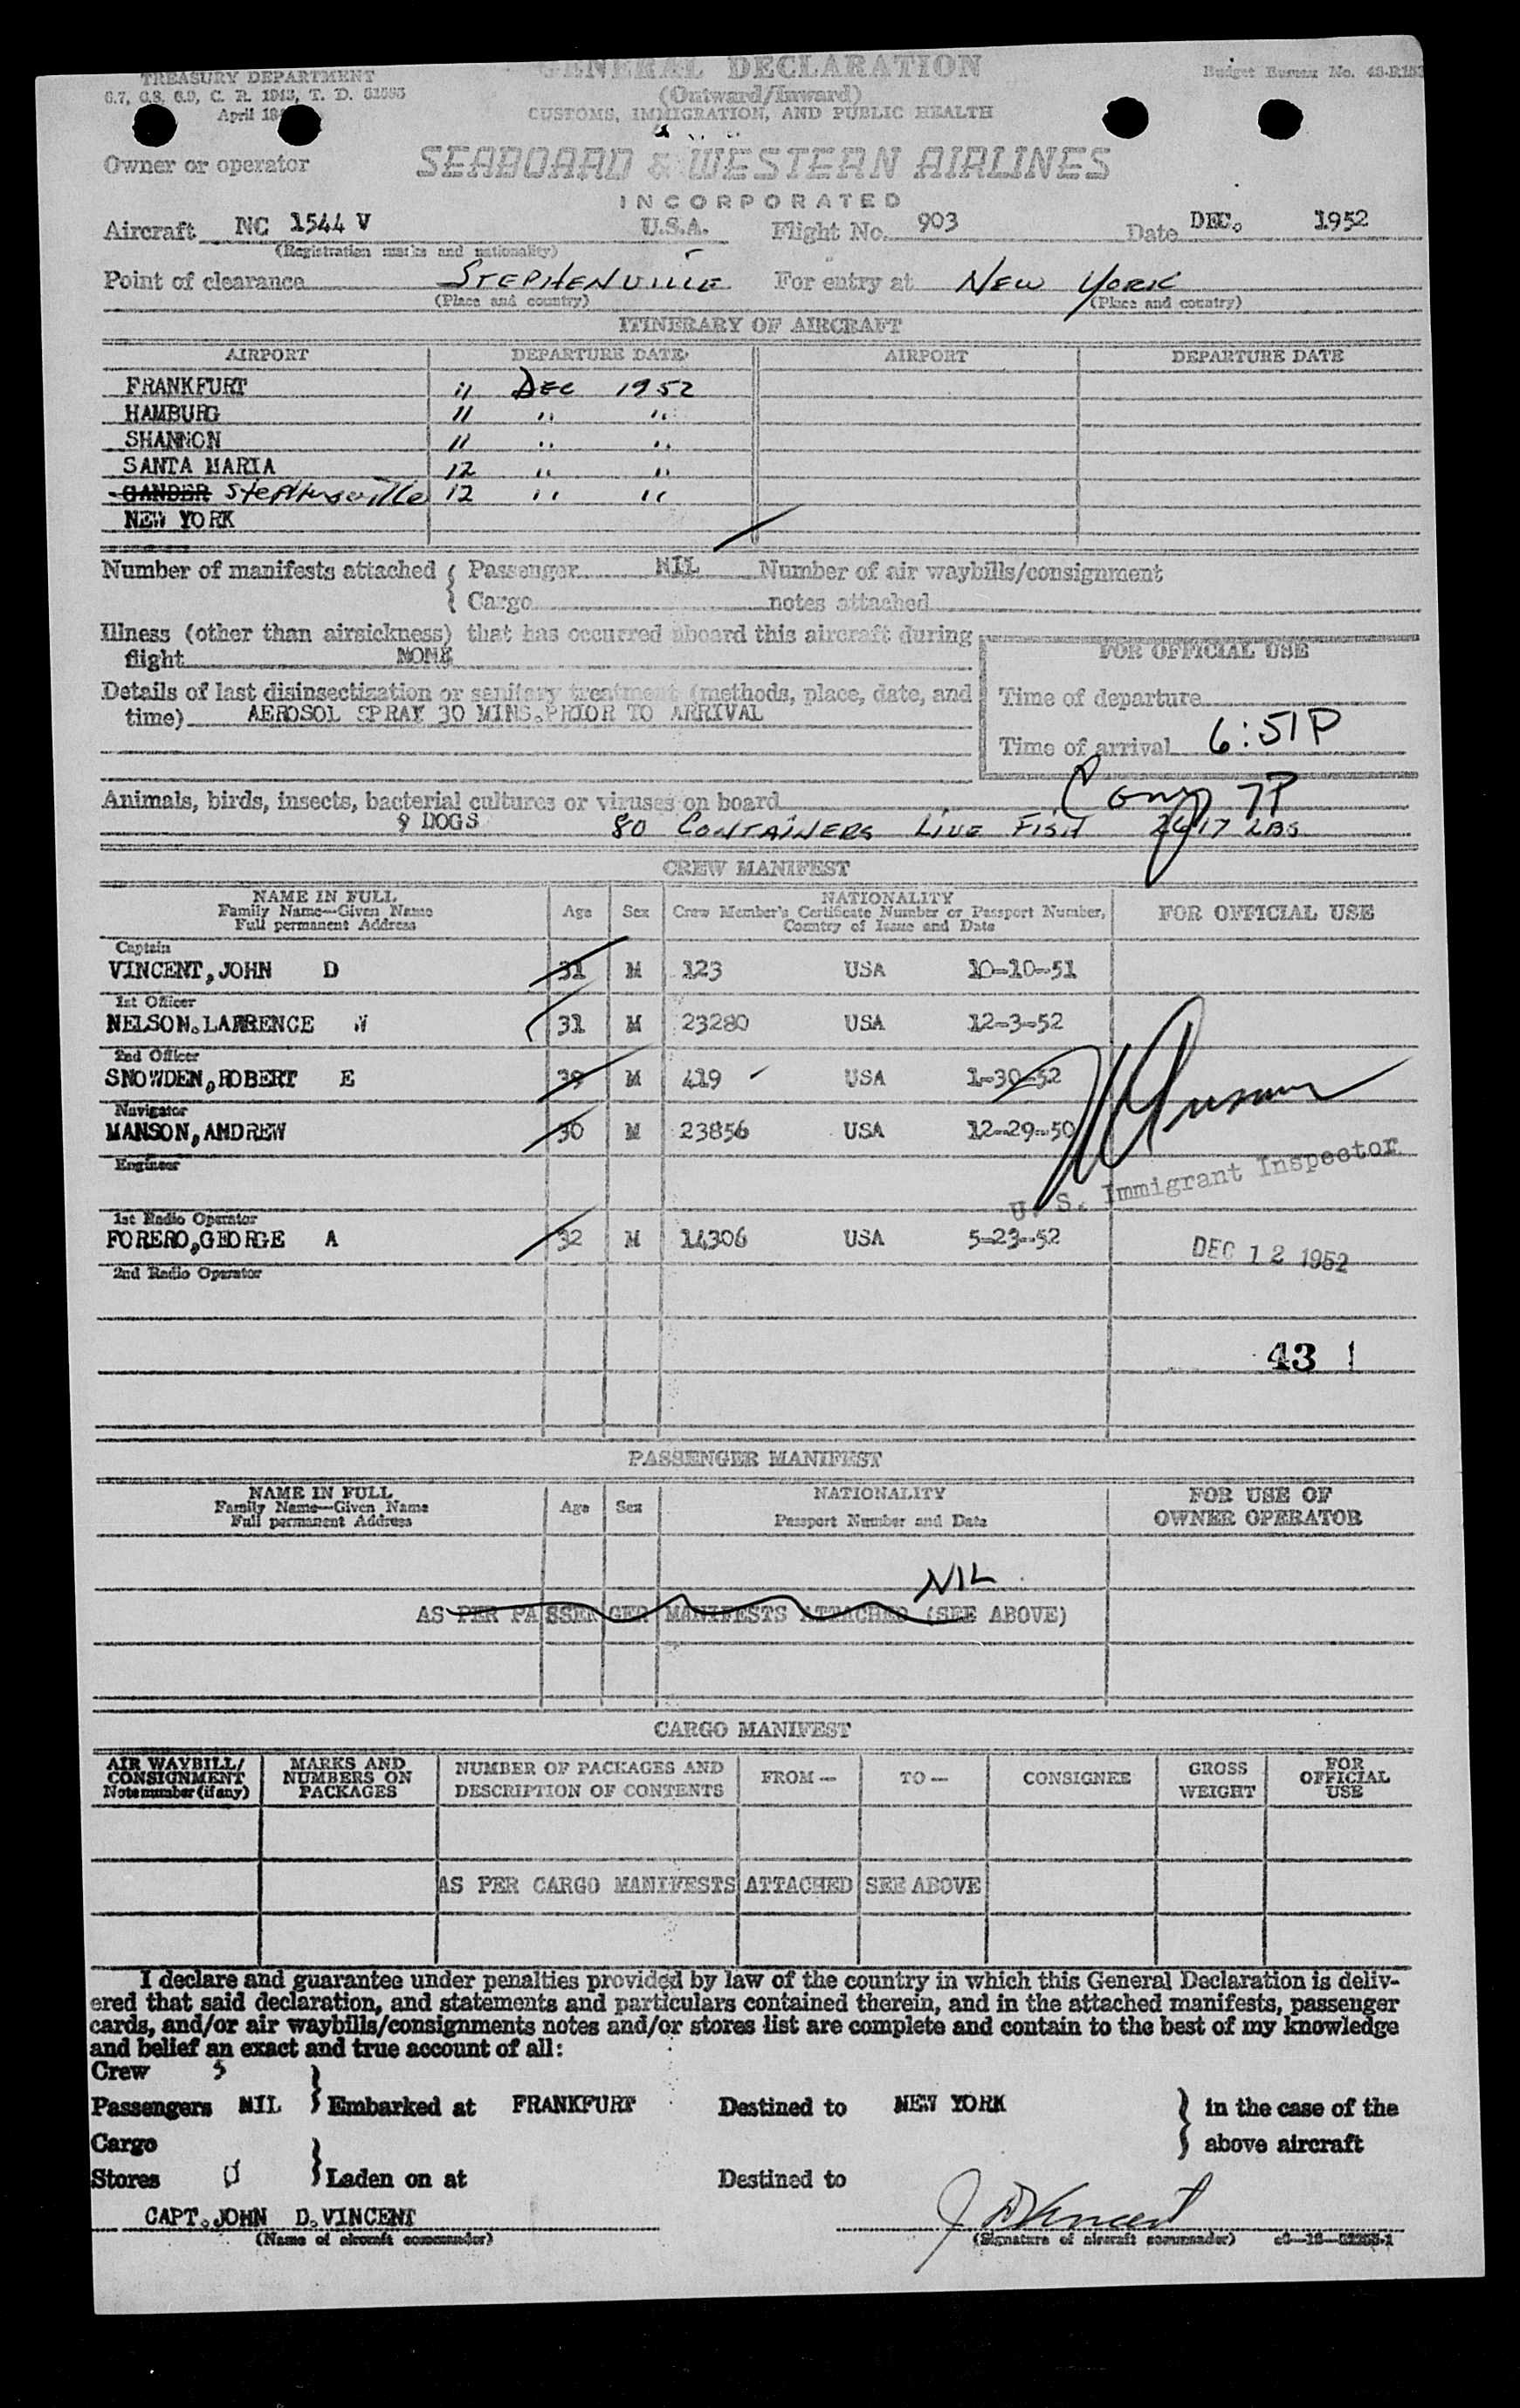 TREASURY DEPARTMENT
GENERAL DECLARATION
(Outward/Inward)
CUSTOMS, IMMIGRATION, AND PUBLIC HEALTH
Budget Bureau No.
6.7, 6.8, 6.9, C. R. 1943, T. D.
April
Owner or operator SEABOARD & WESTERN AIRLINES
INCORPORATED
Aircraft NC 1544 V U.S.A. Flight No. 903 Date DEC. 1952
(Registration marks and nationality)
Point of clearance STEPHENVILLE For entry at NEW YORK
(Place and country) (Place and country)
ITINERARY OF AIRCRAFT
AIRPORT DEPARTURE DATE AIRPORT DEPARTURE DATE
FRANKFURT 11 DEC 1952
HAMBURG 11 " "
SHANNON 11 " "
SANTA MARIA 12 " "
GANDER Stephensville 12 " "
NEW YORK
Number of manifests attached { Passenger NIL Number of air waybills/consignment
Cargo notes attached
Illness (other than airsickness) that has occurred aboard this aircraft during
flight NONE
FOR OFFICIAL USE
Details of last disinsectization or sanitary treatment (methods, place, date, and
time) AEROSOL SPRAY 30 MINS.PRIOR TO ARRIVAL
Time of departure
Time of arrival 6:51P
Animals, birds, insects, bacterial cultures or viruses on board 7P
9 DOGS 80 CONTAINERS LIVE FISH 2617 LBS
CREW MANIFEST
NAME IN FULL
Family Name—Given Name
Full permanent Address
Age Sex
NATIONALITY
Crew Member's Certificate Number or Passport Number,
Country of Issue and Date
FOR OFFICIAL USE
Captain
VINCENT,JOHN D 31 M 123 USA 10-10-51
1st Officer
NELSON.LAWRENCE W 31 M 23280 USA 12-3-52
2nd Officer
SNOWDEN,ROBERT E 39 M 419 USA 1-30-52
Navigator
MANSON,ANDREW 30 M 23856 USA 12-29-50
Engineer
U. S. Immigrant Inspector
1st Radio Operator
FORERO,GEORGE A 32 M 14306 USA 5-23-52
DEC 12 1952
2nd Radio Operator
43
PASSENGER MANIFEST
NAME IN FULL
Family Name—Given Name
Full permanent Address
Age Sex
NATIONALITY
Passport Number and Date
FOR USE OF
OWNER OPERATOR
NIL
AS PER PASSENGER MANIFESTS ATTACHED (SEE ABOVE)
CARGO MANIFEST
AIR WAYBILL/
CONSIGNMENT
Note number (if any)
MARKS AND
NUMBERS ON
PACKAGES
NUMBER OF PACKAGES AND
DESCRIPTION OF CONTENTS
FROM— TO— CONSIGNEE
GROSS
WEIGHT
FOR
OFFICIAL
USE
AS PER CARGO MANIFESTS ATTACHED SEE ABOVE
I declare and guarantee under penalties provided by law of the country in which this General Declaration is deliv-
ered that said declaration, and statements and particulars contained therein, and in the attached manifests, passenger
cards, and/or air waybills/consignments notes and/or stores list are complete and contain to the best of my knowledge
and belief an exact and true account of all:
Crew 5
Passengers NIL } Embarked at FRANKFURT Destined to NEW YORK } in the case of the
Cargo above aircraft
Stores } Laden on at Destined to
CAPT.JOHN D.VINCENT J D Vincent
(Name of aircraft commander) (Signature of aircraft commander)